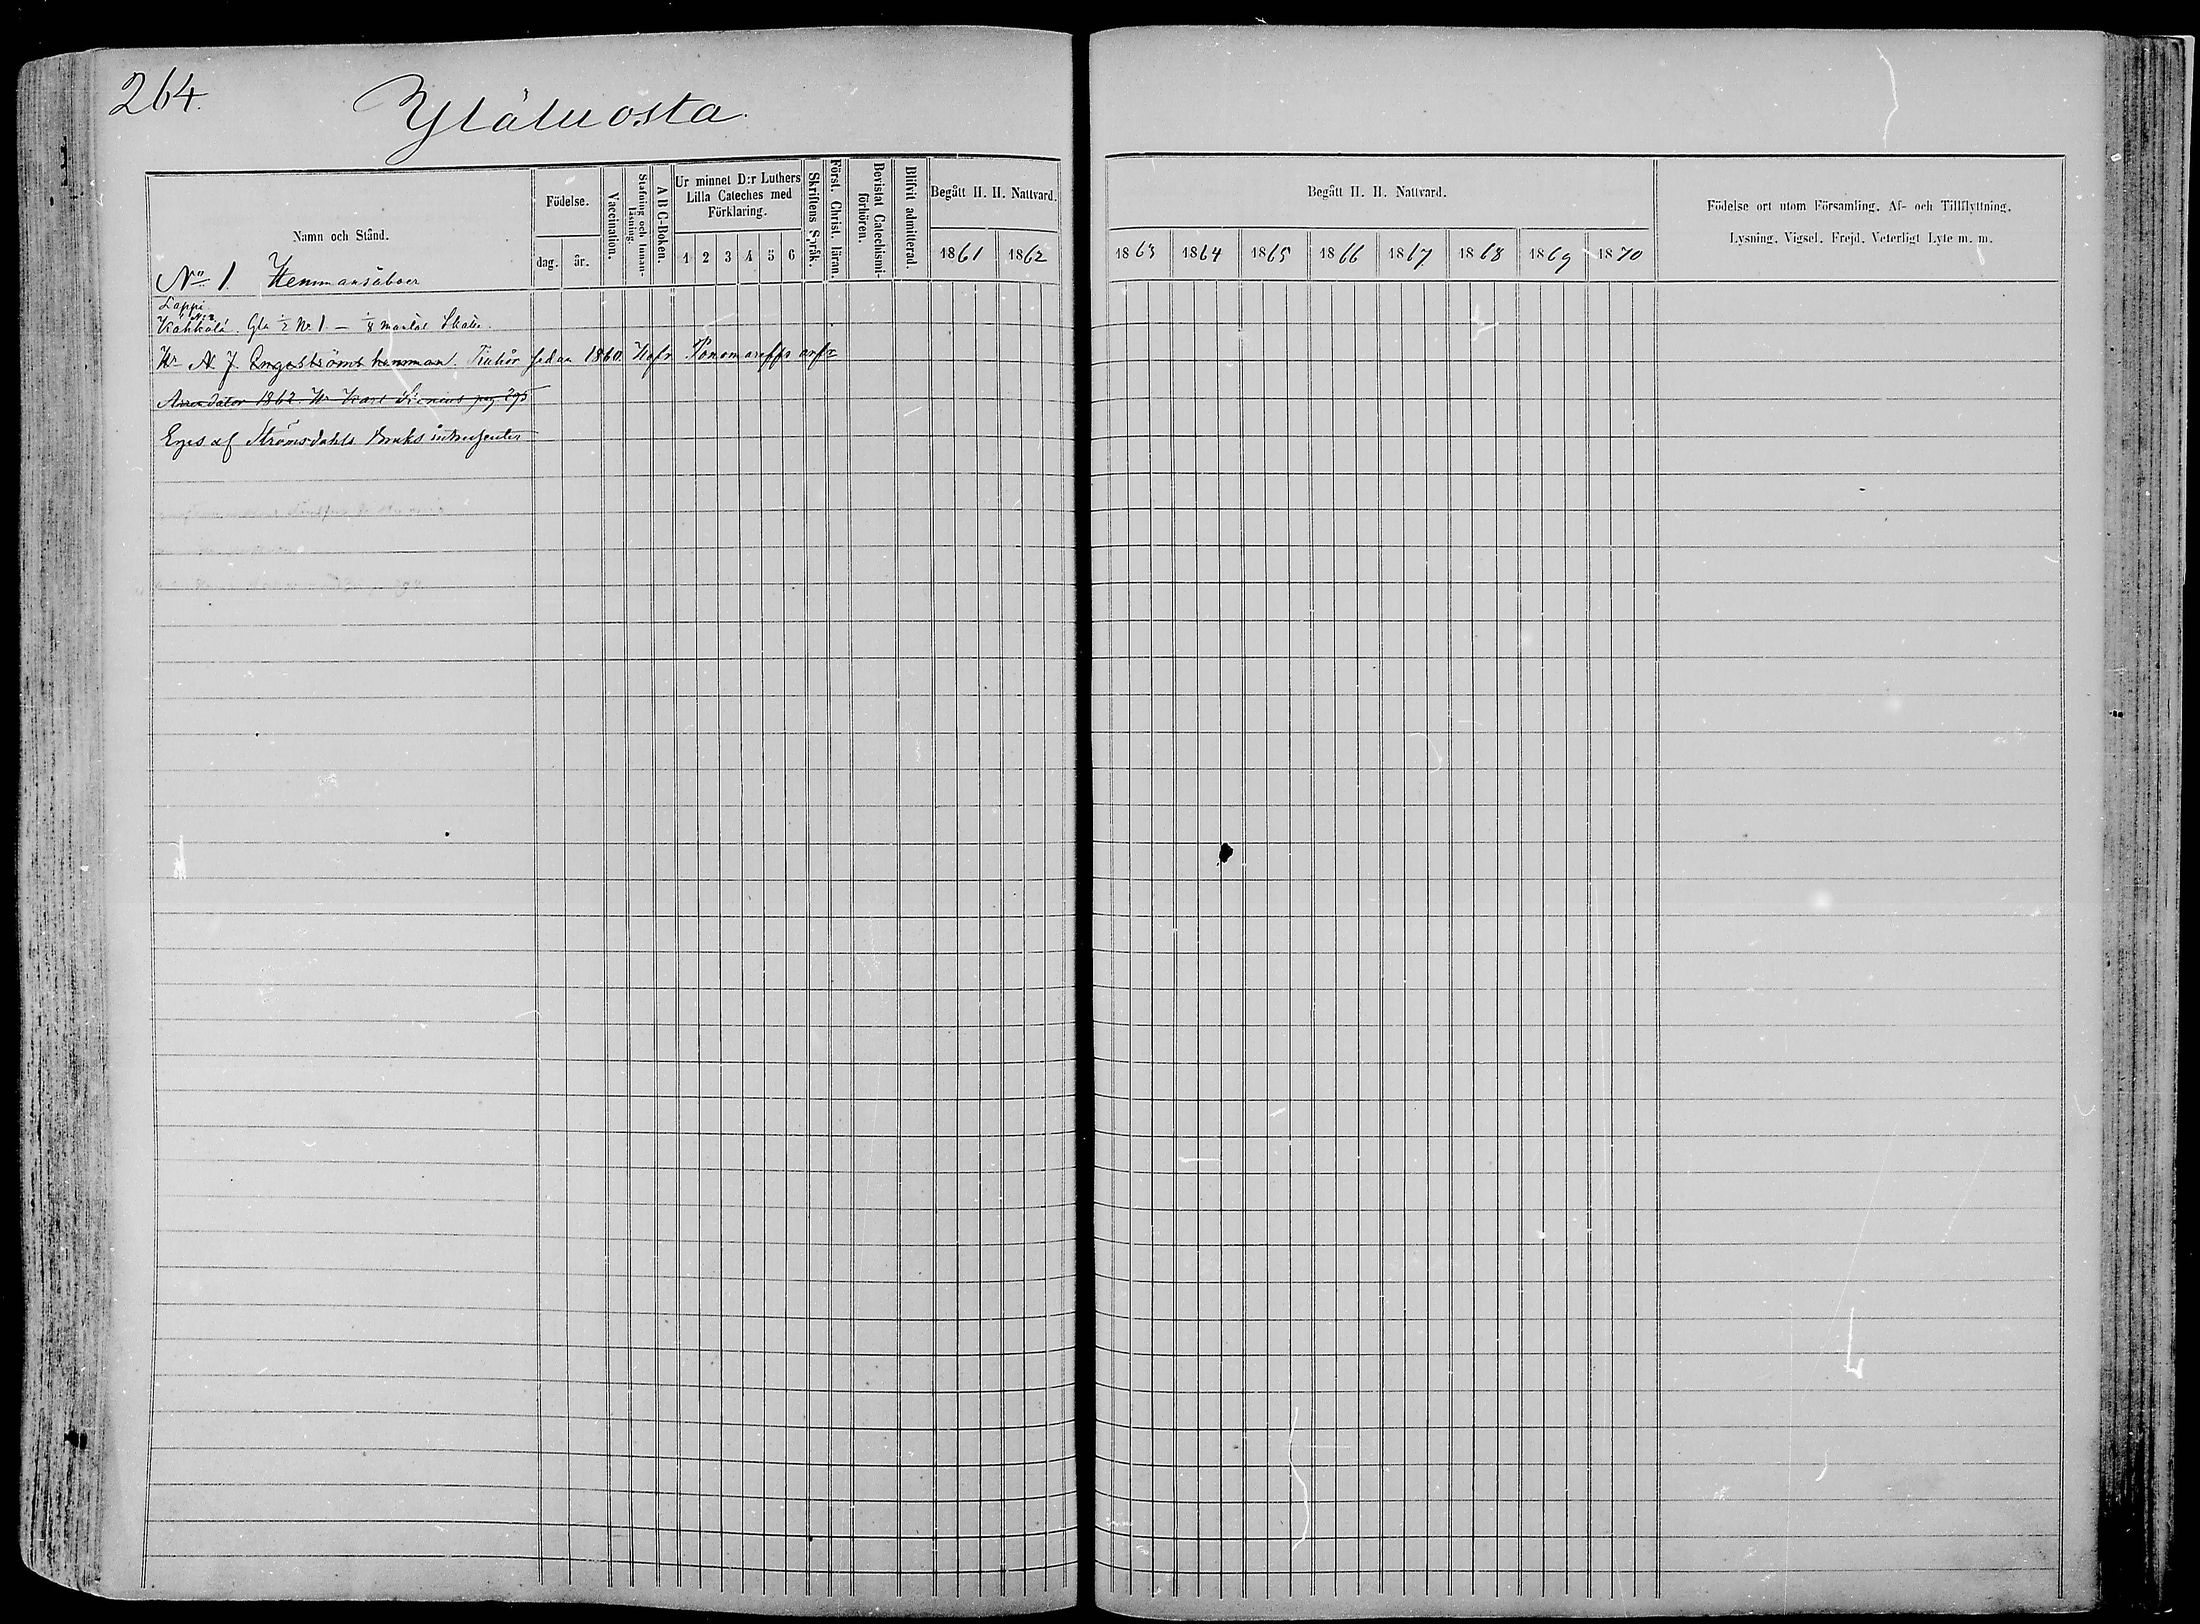 264.
Yläluosta
Namn och Stånd.
Födelse.
dag.
år.
Vaccination.
Stafning och Innan-läsning.
A B C-Boken.
Ur minnet D:r Luthers Lilla Cateches med Förklaring.
1 2 3 4 5 6
Skriftens Språk.
Först. Christ. läran.
Bevistat Catechismi-förhören.
Blifvit admitterad.
Begått H. H. Nattvard.
1861 1862
Begått H. H. Nattvard.
1863 1864 1865 1866 1867 1868 1869 1870
Födelse ort utom Församling, Af- och Tillflyttning,
Lysning, Vigsel, Frejd, Veterligt Lyte m. m.
No 1 Hemmansåboer
Lappi
N:2
Kahkola. Gla ½ No 1. — ⅛ mantal Skatte.
Hr A. J. Engeströms hemman. Tillhör sedan 1860. Hofr. Ponomareffs arfr
Arrendator 1862. Hr Karl Sirenius pag 295
Eges af Strömsdahls Bruks intressenter